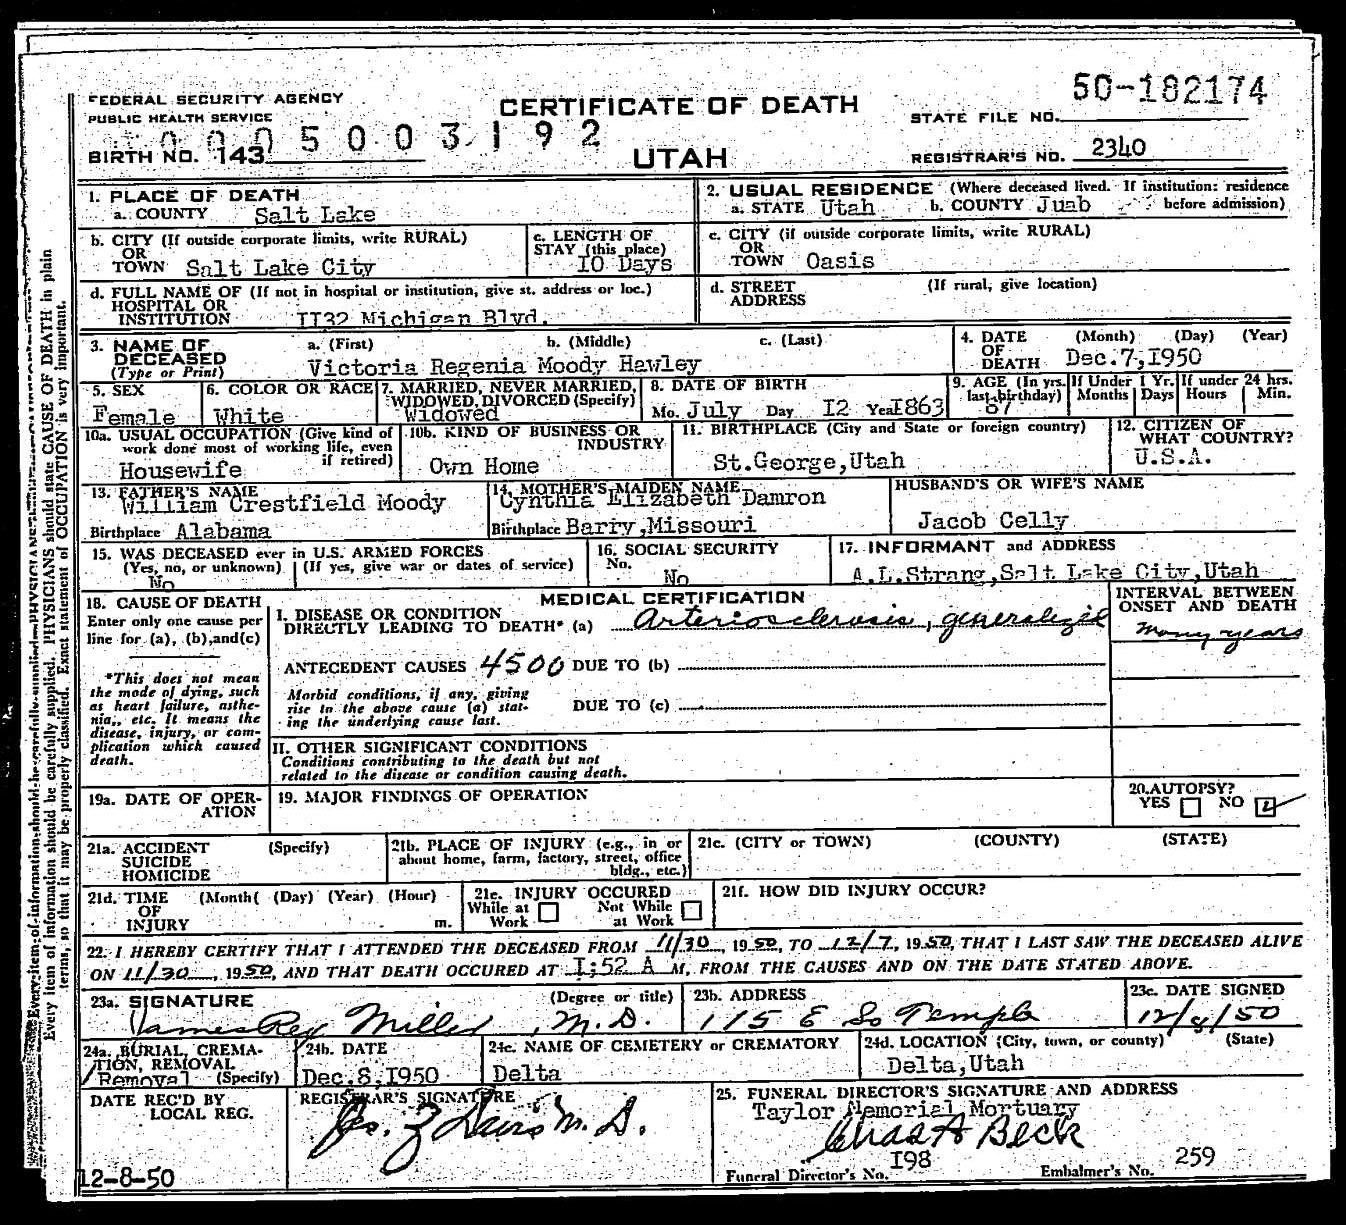 FEDERAL SECURITY AGENCY
PUBLIC HEALTH SERVICE
CERTIFICATE OF DEATH
UTAH
50-182174
STATE FILE NO.
0005003192
BIRTH NO. 143
REGISTRAR'S NO. 2340
1. PLACE OF DEATH
a. COUNTY Salt Lake
2. USUAL RESIDENCE (Where deceased lived. If institution: residence
a. STATE Utah b. COUNTY Juab before admission)
b. CITY (If outside corporate limits, write RURAL)
OR
TOWN Salt Lake City
c. LENGTH OF
STAY (this place)
10 Days
c. CITY (if outside corporate limits, write RURAL)
OR
TOWN Oasis
d. FULL NAME OF (If not in hospital or institution, give st. address or loc.)
HOSPITAL OR
INSTITUTION II32 Michigan Blvd.
d. STREET (If rural, give location)
ADDRESS
3. NAME OF a. (First) b. (Middle) c. (Last)
DECEASED
(Type or Print) Victoria Regenia Moody Hawley
4. DATE (Month) (Day) (Year)
OF
DEATH Dec.7,I950
5. SEX
Female
6. COLOR OR RACE
White
7. MARRIED, NEVER MARRIED,
WIDOWED, DIVORCED (Specify)
Widowed
8. DATE OF BIRTH
Mo. July Day I2 Year I863
9. AGE (In yrs. last birthday)
87
If Under 1 Yr.
Months Days
If under 24 hrs.
Hours Min.
10a. USUAL OCCUPATION (Give kind of
work done most of working life, even
if retired)
Housewife
10b. KIND OF BUSINESS OR
INDUSTRY
Own Home
11. BIRTHPLACE (City and State or foreign country)
St.George,Utah
12. CITIZEN OF
WHAT COUNTRY?
U.S.A.
13. FATHER'S NAME
William Crestfield Moody
Birthplace Alabama
14. MOTHER'S MAIDEN NAME
Cynthia Elizabeth Damron
Birthplace Barry,Missouri
HUSBAND'S OR WIFE'S NAME
Jacob Celly
15. WAS DECEASED ever in U.S. ARMED FORCES
(Yes, no, or unknown) (If yes, give war or dates of service)
No
16. SOCIAL SECURITY
No.
No
17. INFORMANT and ADDRESS
A.L.Strang,Salt Lake City,Utah
18. CAUSE OF DEATH
Enter only one cause per
line for (a), (b),and(c)
*This does not mean
the mode of dying, such
as heart failure, asthe-
nia,, etc. It means the
disease, injury, or com-
plication which caused
death.
MEDICAL CERTIFICATION
I. DISEASE OR CONDITION
DIRECTLY LEADING TO DEATH* (a) Arteriosclerosis, generalized
INTERVAL BETWEEN
ONSET AND DEATH
Many years
ANTECEDENT CAUSES 4500 DUE TO (b)
Morbid conditions, if any, giving
rise to the above cause (a) stat-
ing the underlying cause last.
DUE TO (c)
II. OTHER SIGNIFICANT CONDITIONS
Conditions contributing to the death but not
related to the disease or condition causing death.
19a. DATE OF OPER-
ATION
19. MAJOR FINDINGS OF OPERATION
20. AUTOPSY?
YES NO
21a. ACCIDENT (Specify)
SUICIDE
HOMICIDE
21b. PLACE OF INJURY (e.g., in or
about home, farm, factory, street, office
bldg., etc.)
21c. (CITY or TOWN) (COUNTY) (STATE)
21d. TIME (Month( (Day) (Year) (Hour)
OF
INJURY m.
21e. INJURY OCCURED
While at Work Not While at Work
21f. HOW DID INJURY OCCUR?
22. I HEREBY CERTIFY THAT I ATTENDED THE DECEASED FROM 11/30, 1950, TO 12/7, 1950, THAT I LAST SAW THE DECEASED ALIVE
ON 11/30, 1950, AND THAT DEATH OCCURED AT I:52 A M, FROM THE CAUSES AND ON THE DATE STATED ABOVE.
23a. SIGNATURE (Degree or title)
James Rex Miller, M.D.
23b. ADDRESS
115 E So Temple
23c. DATE SIGNED
12/8/50
24a. BURIAL, CREMA-
TION, REMOVAL
Removal (Specify)
24b. DATE
Dec.8,I950
24c. NAME OF CEMETERY or CREMATORY
Delta
24d. LOCATION (City, town, or county) (State)
Delta,Utah
DATE REC'D BY
LOCAL REG.
12-8-50
REGISTRAR'S SIGNATURE
Davis M.D.
25. FUNERAL DIRECTOR'S SIGNATURE AND ADDRESS
Taylor Memorial Mortuary
Chas A Beck
Funeral Director's No. I98
Embalmer's No. 259
Every item of information should be carefully supplied. PHYSICIANS should state CAUSE OF DEATH in plain
terms, so that it may be properly classified. Exact statement of OCCUPATION is very important.